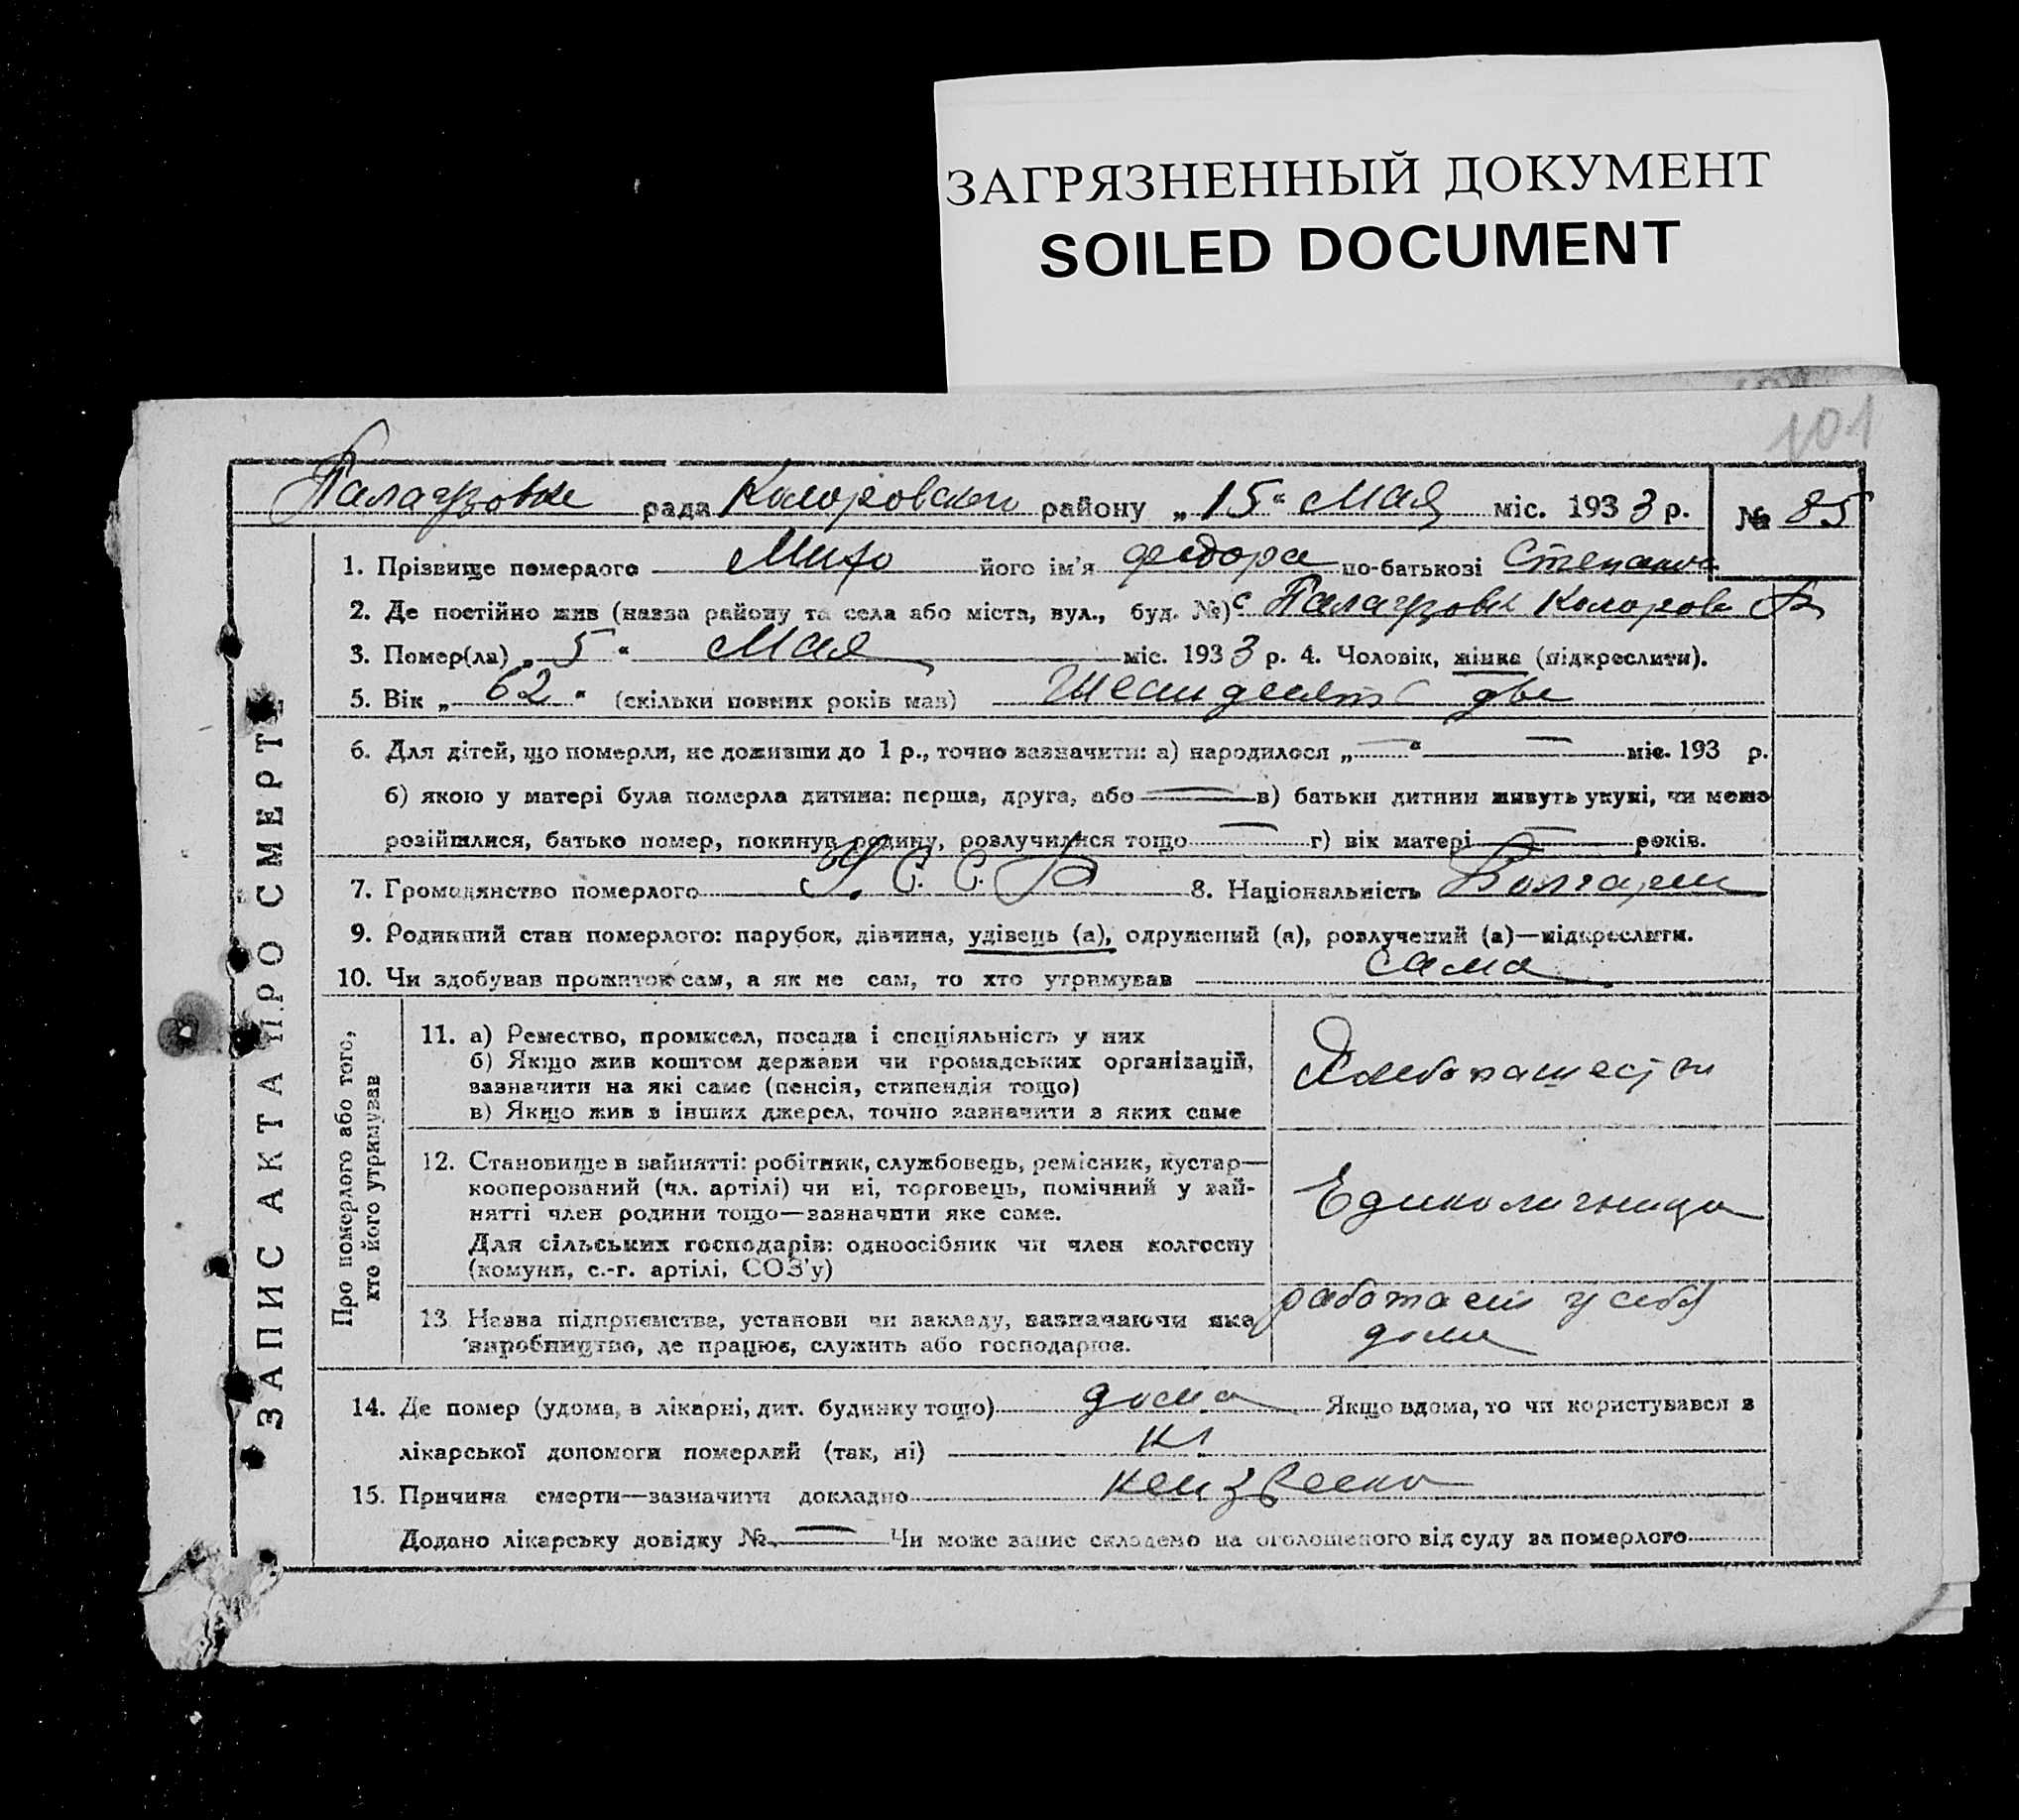 ЗАГРЯЗНЕННЫЙ ДОКУМЕНТ
SOILED DOCUMENT
101
рада Коларовского району „15“ Мая міс. 1933 р. № 85
ЗАПИС АКТА ПРО СМЕРТЬ
1. Прізвище померлого його ім'я Федора по-батькові
2. Де постійно жив (назва району та села або міста, вул., буд. №) с
3. Помер(ла) „5“ Мая міс. 1933 р. 4. Чоловік, жінка (підкреслити).
5. Вік „62“ (скільки повних років мав) Шесидесят две
6. Для дітей, що померли, не доживши до 1 р., точно зазначити: а) народилося „—“ — міс. 193 р.
б) якою у матері була померла дитина: перша, друга, або — в) батьки дитини живуть укупі, чи мешо
розійшлися, батько помер, покинув родину, розлучилися тощо — г) вік матері — років.
7. Громадянство померлого У. С. С. Р 8. Національність
9. Родинний стан померлого: парубок, дівчина, удівець (а), одружений (а), розлучений (а)—підкреслити.
10. Чи здобував прожиток сам, а як не сам, то хто утримував сама
Про померлого або того,
хто його утримував
11. а) Ремество, промисел, посада і спеціяльність у них
б) Якщо жив коштом держави чи громадських організацій,
зазначити на які саме (пенсія, стипендія тощо)
в) Якщо жив з інших джерел, точно зазначити з яких саме
Хлебопашество
12. Становище в зайнятті: робітник, службовець, ремісник, кустар—
кооперований (чл. артілі) чи ні, торговець, помічний у зай-
нятті член родини тощо—зазначити яке саме.
Для сільських господарів: одноосібник чи член колгоспу
(комуни, с.-г. артілі, СОЗ'у)
Единоличница
13. Назва підприємства, установи чи закладу, зазначаючи яка
виробництво, де працює, служить або господарює.
работает у себя
дома
14. Де помер (удома, в лікарні, дит. будинку тощо) дома Якщо вдома, то чи користувався з
лікарської допомоги померлий (так, ні) ні
15. Причина смерти—зазначити докладно
Додано лікарську довідку № — Чи може запис складено на оголошеного від суду за померлого